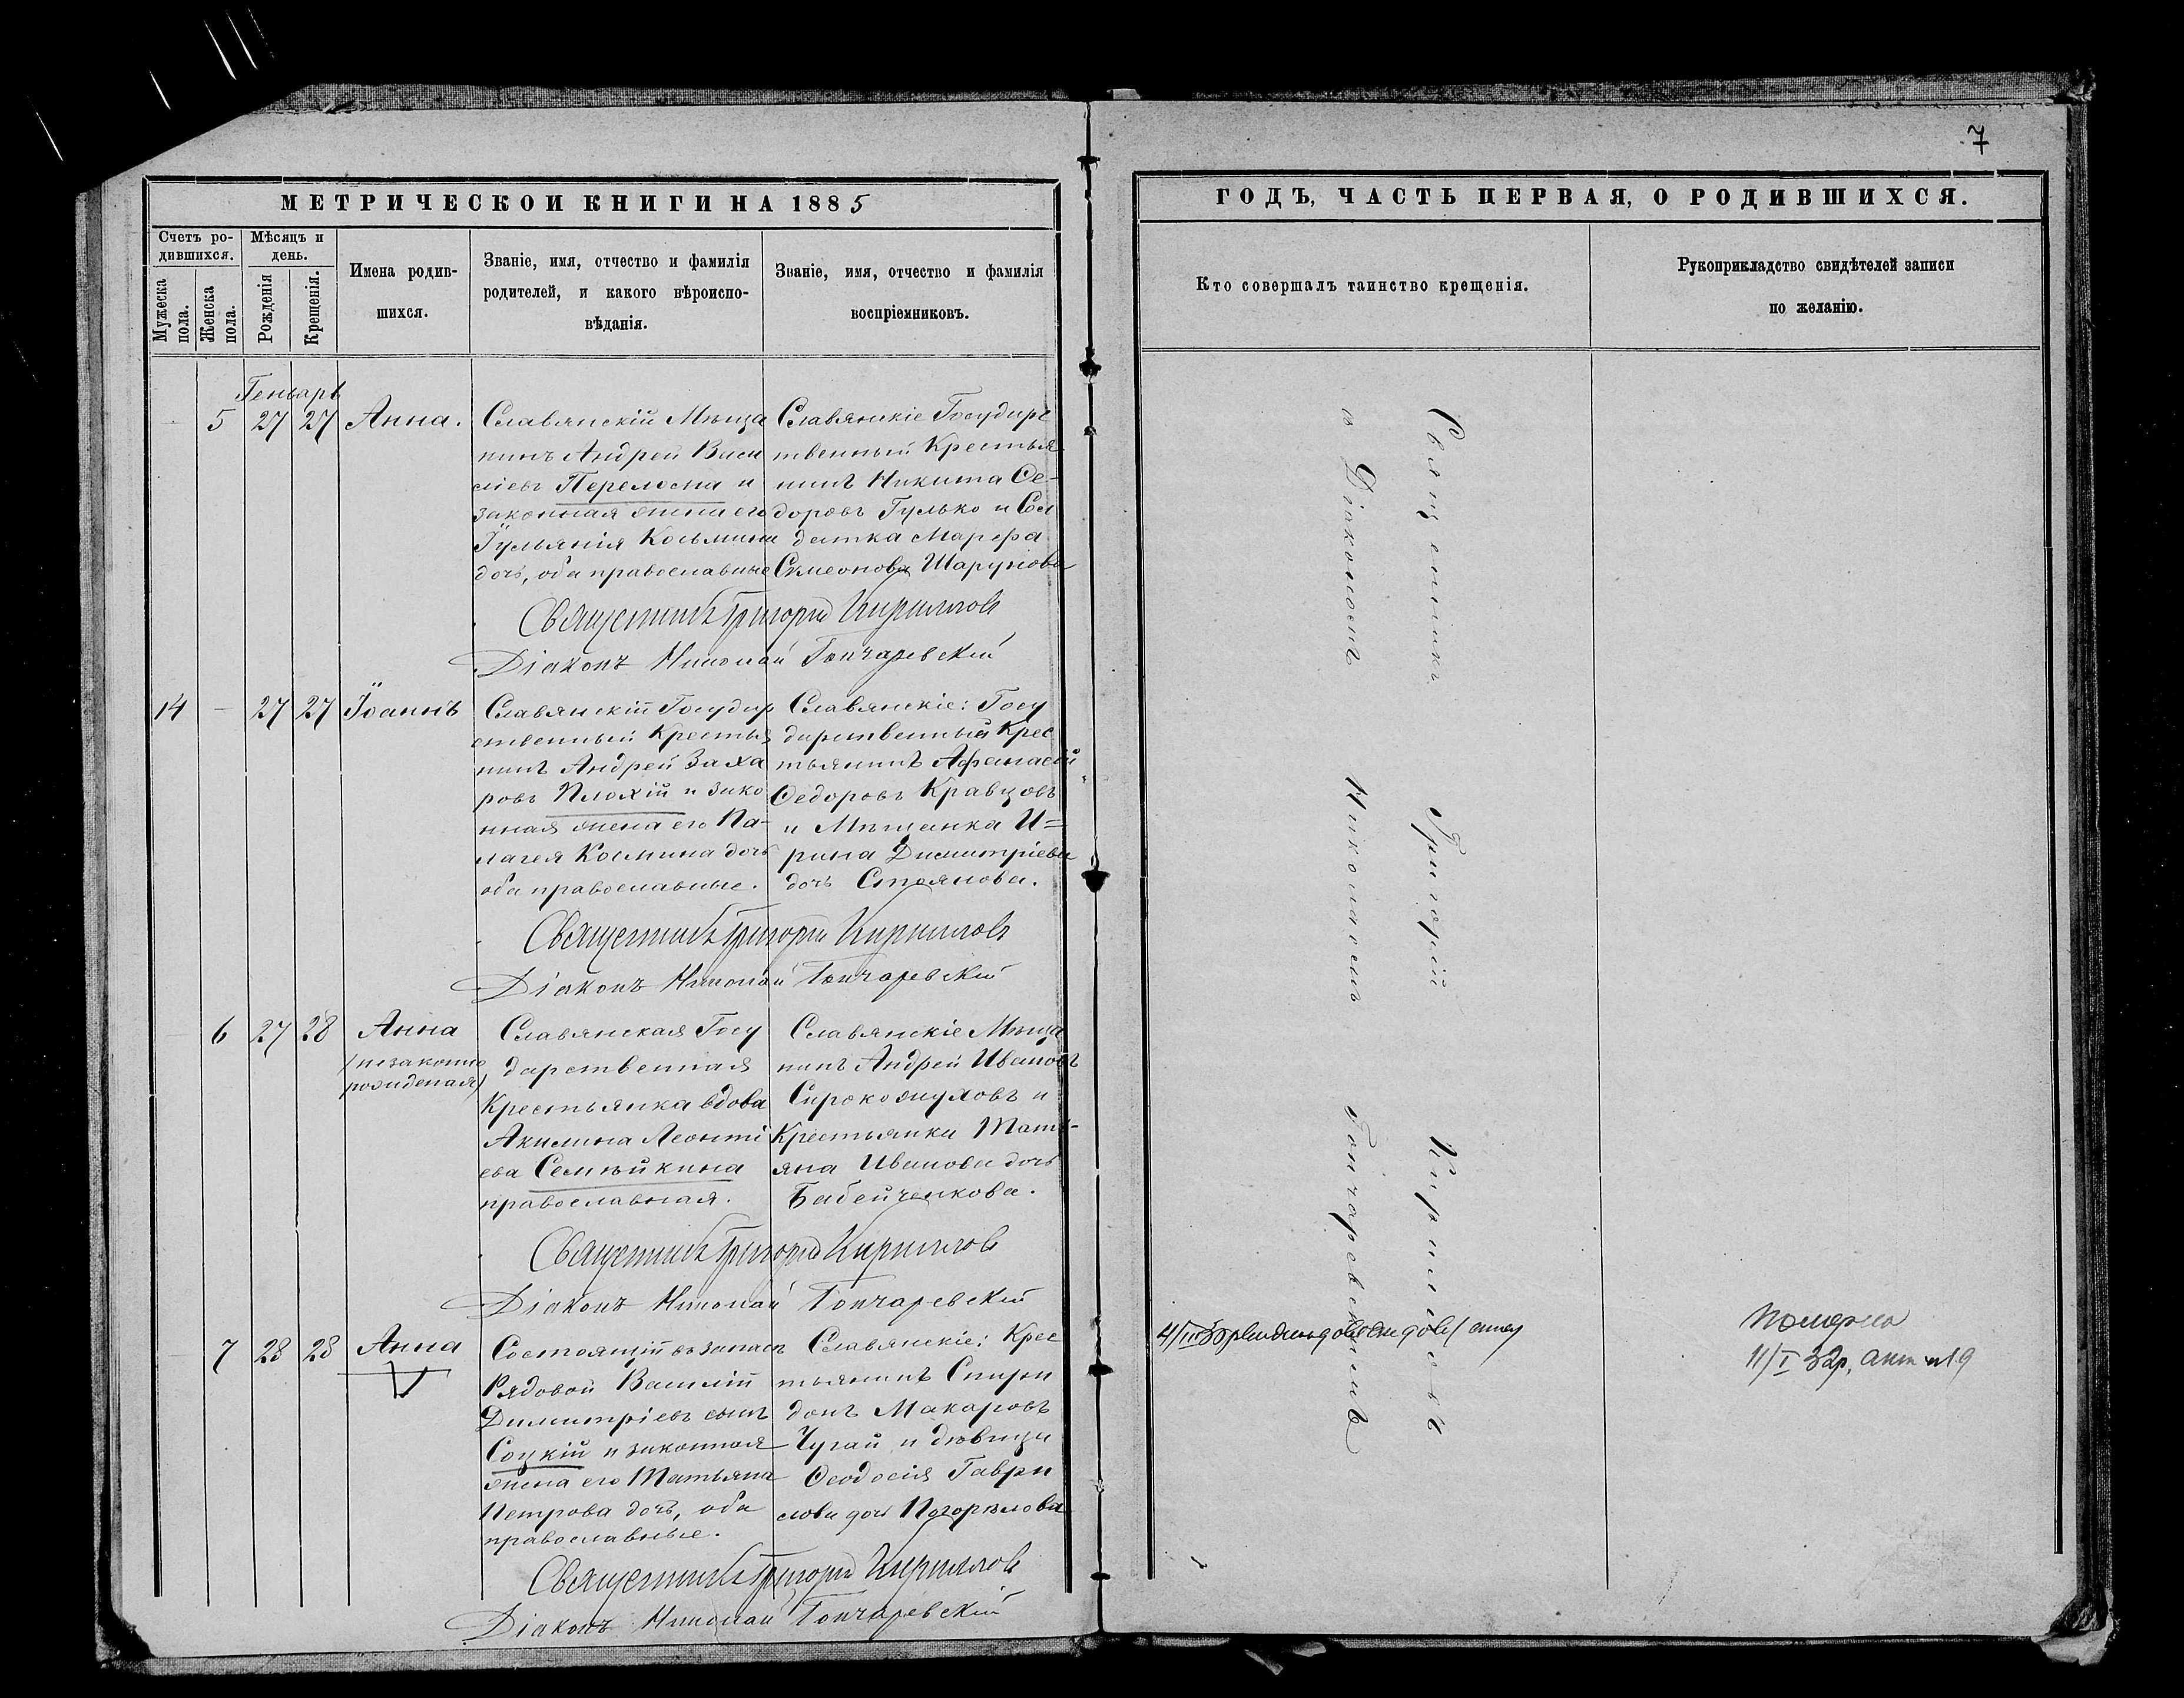 7
МЕТРИЧЕСКОЙ КНИГИ НА 1885
ГОДЪ, ЧАСТЬ ПЕРВАЯ, О РОДИВШИХСЯ.
Счетъ ро-
дившихся.
Мужеска
пола.
Женска
пола.
Мѣсяцъ и
день.
Рожденія
Крещенія.
Имена родив-
шихся.
Званіе, имя, отчество и фамилія
родителей, и какого вѣроиспо-
вѣданія.
Званіе, имя, отчество и фамилія
воспріемниковъ.
Кто совершалъ таинство крещенія.
Рукоприкладство свидѣтелей записи
по желанію.
Генварь
5 27 27 Анна.
Славянскій Мѣща
нинъ Андрей Васи
ліевъ Перелосна и
законная жена его
Іульянія Косьмина
дочь, оба православные
Славянскіе Государс
твенный Крестья
нинъ Никита Ѳе-
доровъ Гулько и Сол
датка Марефа
Симеонова Шарунова
Священникъ Григорій Кирилловъ
Діаконъ Николай Гончаревскій
14 - 27 27 Іоаннъ
Славянскій Государ
ственный Крестья
нинъ Андрей Заха
ровъ Плохій и зако
нная жена его Па-
лагея Космина дочь
оба православные.
Славянскіе: Госу
дарственный Крес
тьянинъ Афанасій
Ѳедоровъ Кравцовъ
и Мѣщанка И=
рина Димитріева
дочь Стоянова.
Священникъ Григорій Кирилловъ
Діаконъ Николай Гончаревскій
6 27 28 Анна
(незаконно
рожденая)
Славянская Госу
дарственная
Крестьянка вдова
Акилина Леонті
ева Семѣйкина
православная.
Славянскіе Мѣща
нинъ Андрей Ивановъ
Сирокожуховъ и
Крестьянка Тать-
яна Иванова дочь
Бабейченкова.
Священникъ Григорій Кирилловъ
Діаконъ Николай Гончаревскій
7 28 28 Анна
Состоящій въ запасѣ
Рядовой Василій
Димитріевъ сынъ
Соцкій и законная
жена его Татьяна
Петрова дочь, оба
православные.
Славянскіе: Крес
тьянинъ Спири
донъ Макаровъ
Чугай и дѣвица
Ѳеодосія Гаври
лова дочь Погорѣлова
Священникъ Григорій Кирилловъ
Діаконъ Николай Гончаревскій
Священникъ Григорій Кирилловъ
с Діакономъ Николаемъ Гончаревскимъ
11/I 32р, акт №19